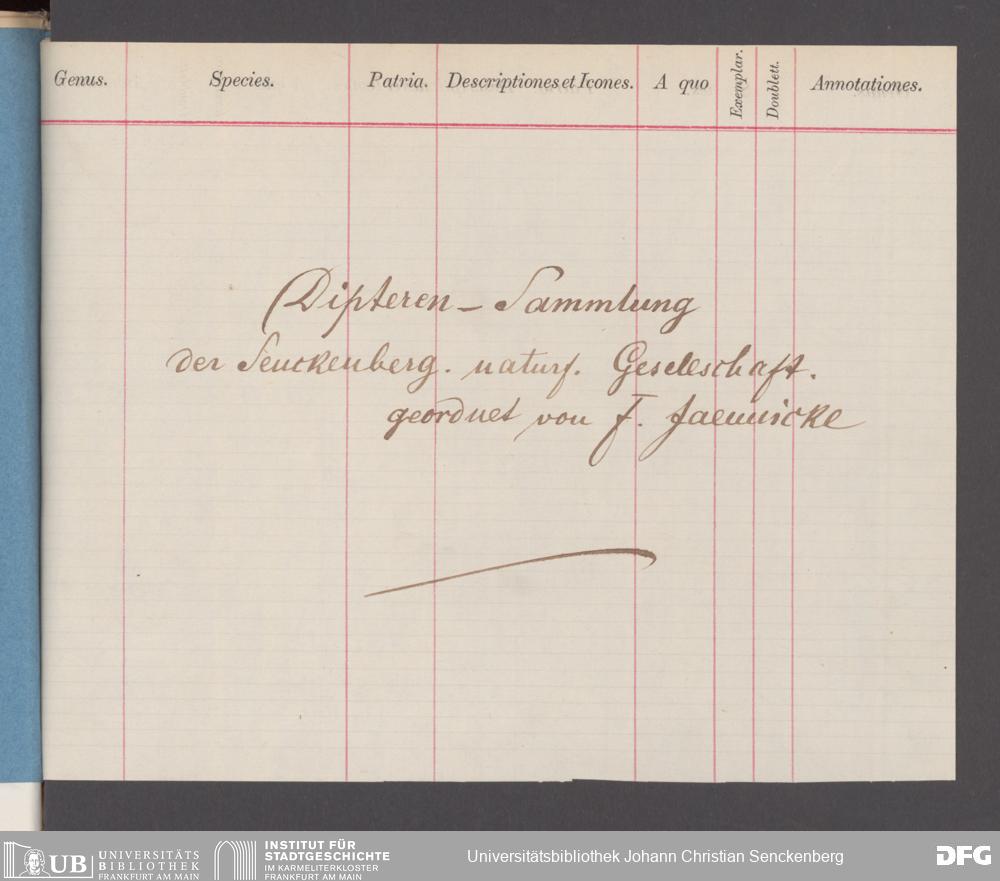 Genus. Species. Patria. Descriptiones et Icones. A quo Exemplar. Doublett. Annotationes.
Dipteren - Sammlung
der Senckenberg. naturf. Gesellschaft.
geordnet von F. Jaennicke
UB UNIVERSITÄTS BIBLIOTHEK FRANKFURT AM MAIN
INSTITUT FÜR STADTGESCHICHTE IM KARMELITERKLOSTER FRANKFURT AM MAIN
Universitätsbibliothek Johann Christian Senckenberg
DFG